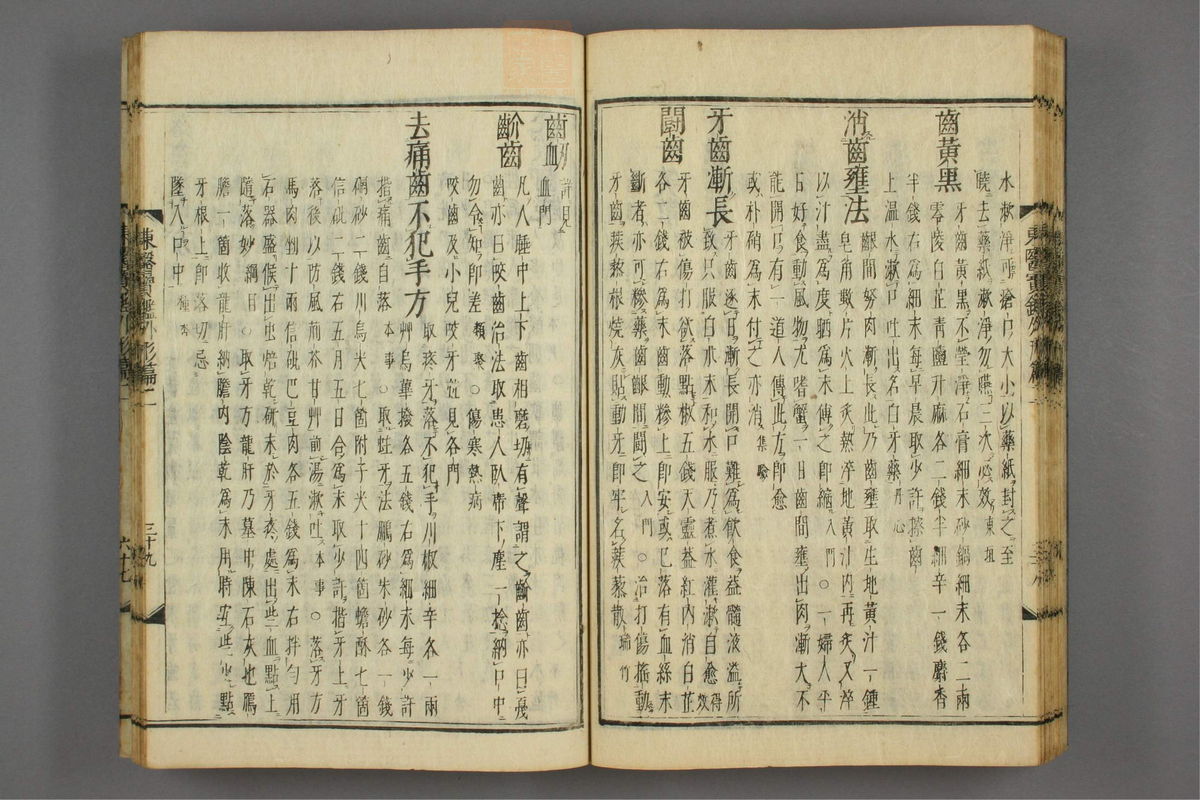 水漱淨再搶口大小以藥紙封之至
曉去藥紙漱淨勿嚥三次必效東垣
齒黃黑
牙齒黃黑不瑩淨石膏細末砂鍋細末各二兩
零陵白芷青鹽升麻各二錢半細辛一錢麝香
半錢右爲細末每早晨取少許擦齒
上溫水漱口吐出名白牙藥丹心
消齒壅法
齦間努肉漸長此乃齒壅取生地黃汁一鍾
皂角數片火上炙熱淬地黃汁內再炙又淬
以汁盡爲度晒爲末傅之卽縮入門○一婦人平
日好食動風物尤嗜蟹一日齒間壅出肉漸大不
能開口有一道人傳此方卽愈
或朴硝爲末付之亦消集驗
牙齒漸長
牙齒逐日漸長開口難爲飮食盖髓液溢所
致只服白朮末和水服乃煮水灌漱自愈得效
鬪齒
牙齒被傷打欲落點椒五錢天靈盖紅內消白芷
各二錢右爲末齒動摻上卽安或已落有血絲未
斷者亦可摻藥齒齦間鬪之入門○治打傷搖動
牙齒蒺蔾根燒灰貼動牙卽牢名蒺蔾散瑞竹
東醫寶鑑外形篇二
齒衄
詳見
血門
齘齒
凡人睡中上下齒相磨切有聲謂之齘齒亦曰戞
齒亦曰咬齒治法取患人臥席下塵一捻納口中
勿令知卽差類聚○傷寒熱病
咬齒及小兒咬牙並見各門
去痛齒不犯手方
取疼牙落不犯手川椒細辛各一兩
艸烏蓽撥各五錢右爲細末每少許
揩痛齒自落本事○取蛀牙法鵬砂朱砂各一錢
碙砂二錢川烏尖七箇附子尖十四箇蟾酥七箇
信砒二錢右五月五日合爲末取少許揩牙上牙
落後以防風荊芥甘艸煎湯漱吐本事○落牙方
馬肉物十兩信砒巴豆肉各五錢爲末右拌勻用
石器盛候出虫焙乾硏末於牙疼處出些血點上
隨落妙綱目○取牙方龍肝乃墓中陳石灰也鴈
膽一箇收龍肝納膽內陰乾爲末用時安些少點
牙根上卽落切忌
墜入口中種杏
東醫寶鑑外形篇二
三十九
六十七